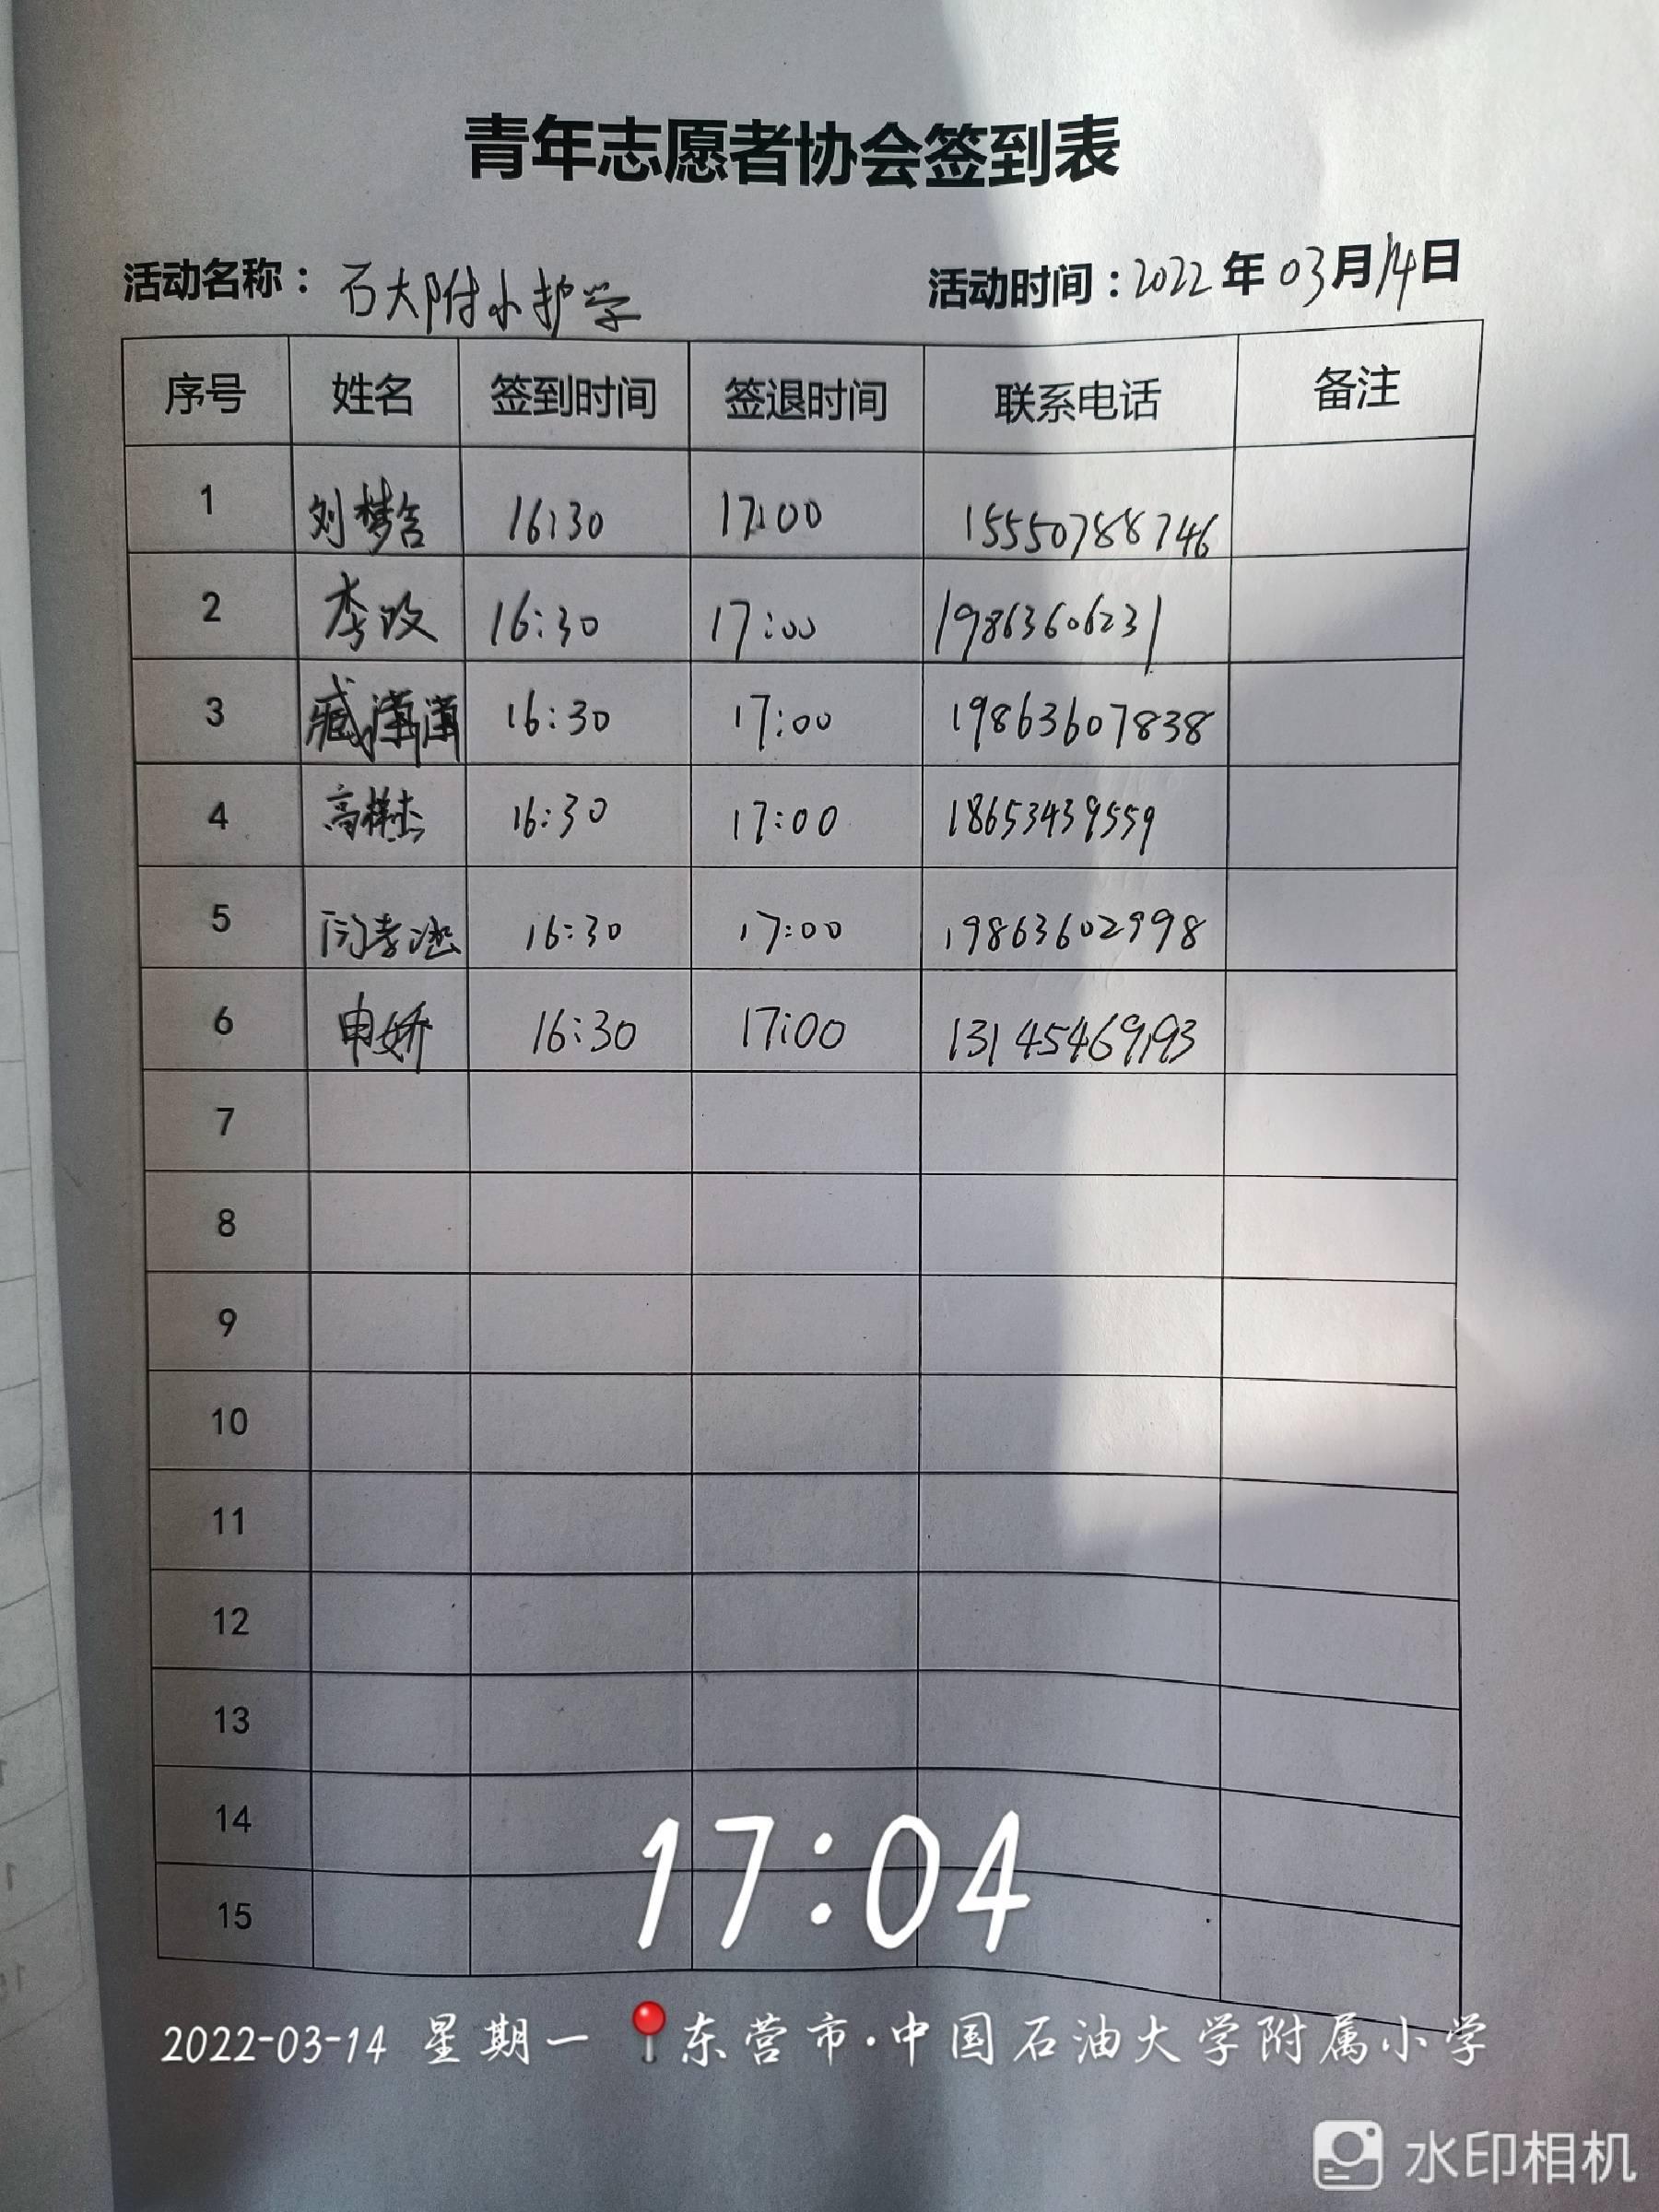 青年志愿者协会签到表
活动名称：石大附小护学 活动时间：2022年03月14日
序号 姓名 签到时间 签退时间 联系电话 备注
1 刘梦含 16:30 17:00 15550788746
2 李政 16:30 17:00 19863606231
3 臧潇潇 16:30 17:00 19863607838
4 高梯杰 16:30 17:00 18653439559
5 闫孝涵 16:30 17:00 19863602998
6 申娇 16:30 17:00 13145469193
7
8
9
10
11
12
13
14
15
17:04
2022-03-14 星期一 东营市·中国石油大学附属小学
水印相机